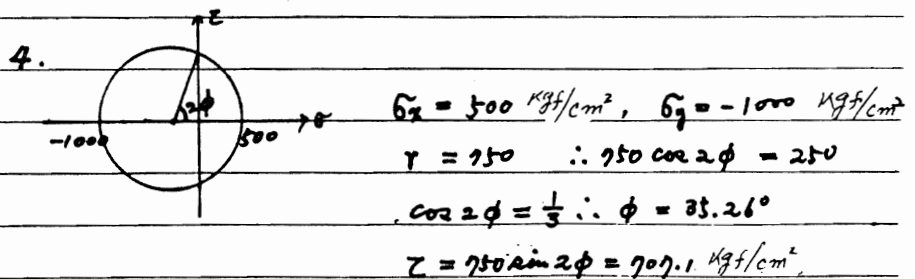 τ
4.
2φ
σ
-1000
500
σx = 500 kgf/cm², σy = -1000 kgf/cm²
r = 750 ∴ 750 cos 2φ = 250
cos 2φ = 1/3 ∴ φ = 35.26°
τ = 750 sin 2φ = 707.1 kgf/cm²